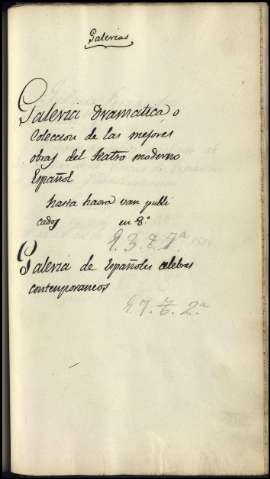 Galerias
Galeria Dramatica, o
Coleccion de las mejores
obras del teatro moderno
Español
hasta haora van publi
cados en 8.º
Galeria de Españoles celebres
contemporaneos